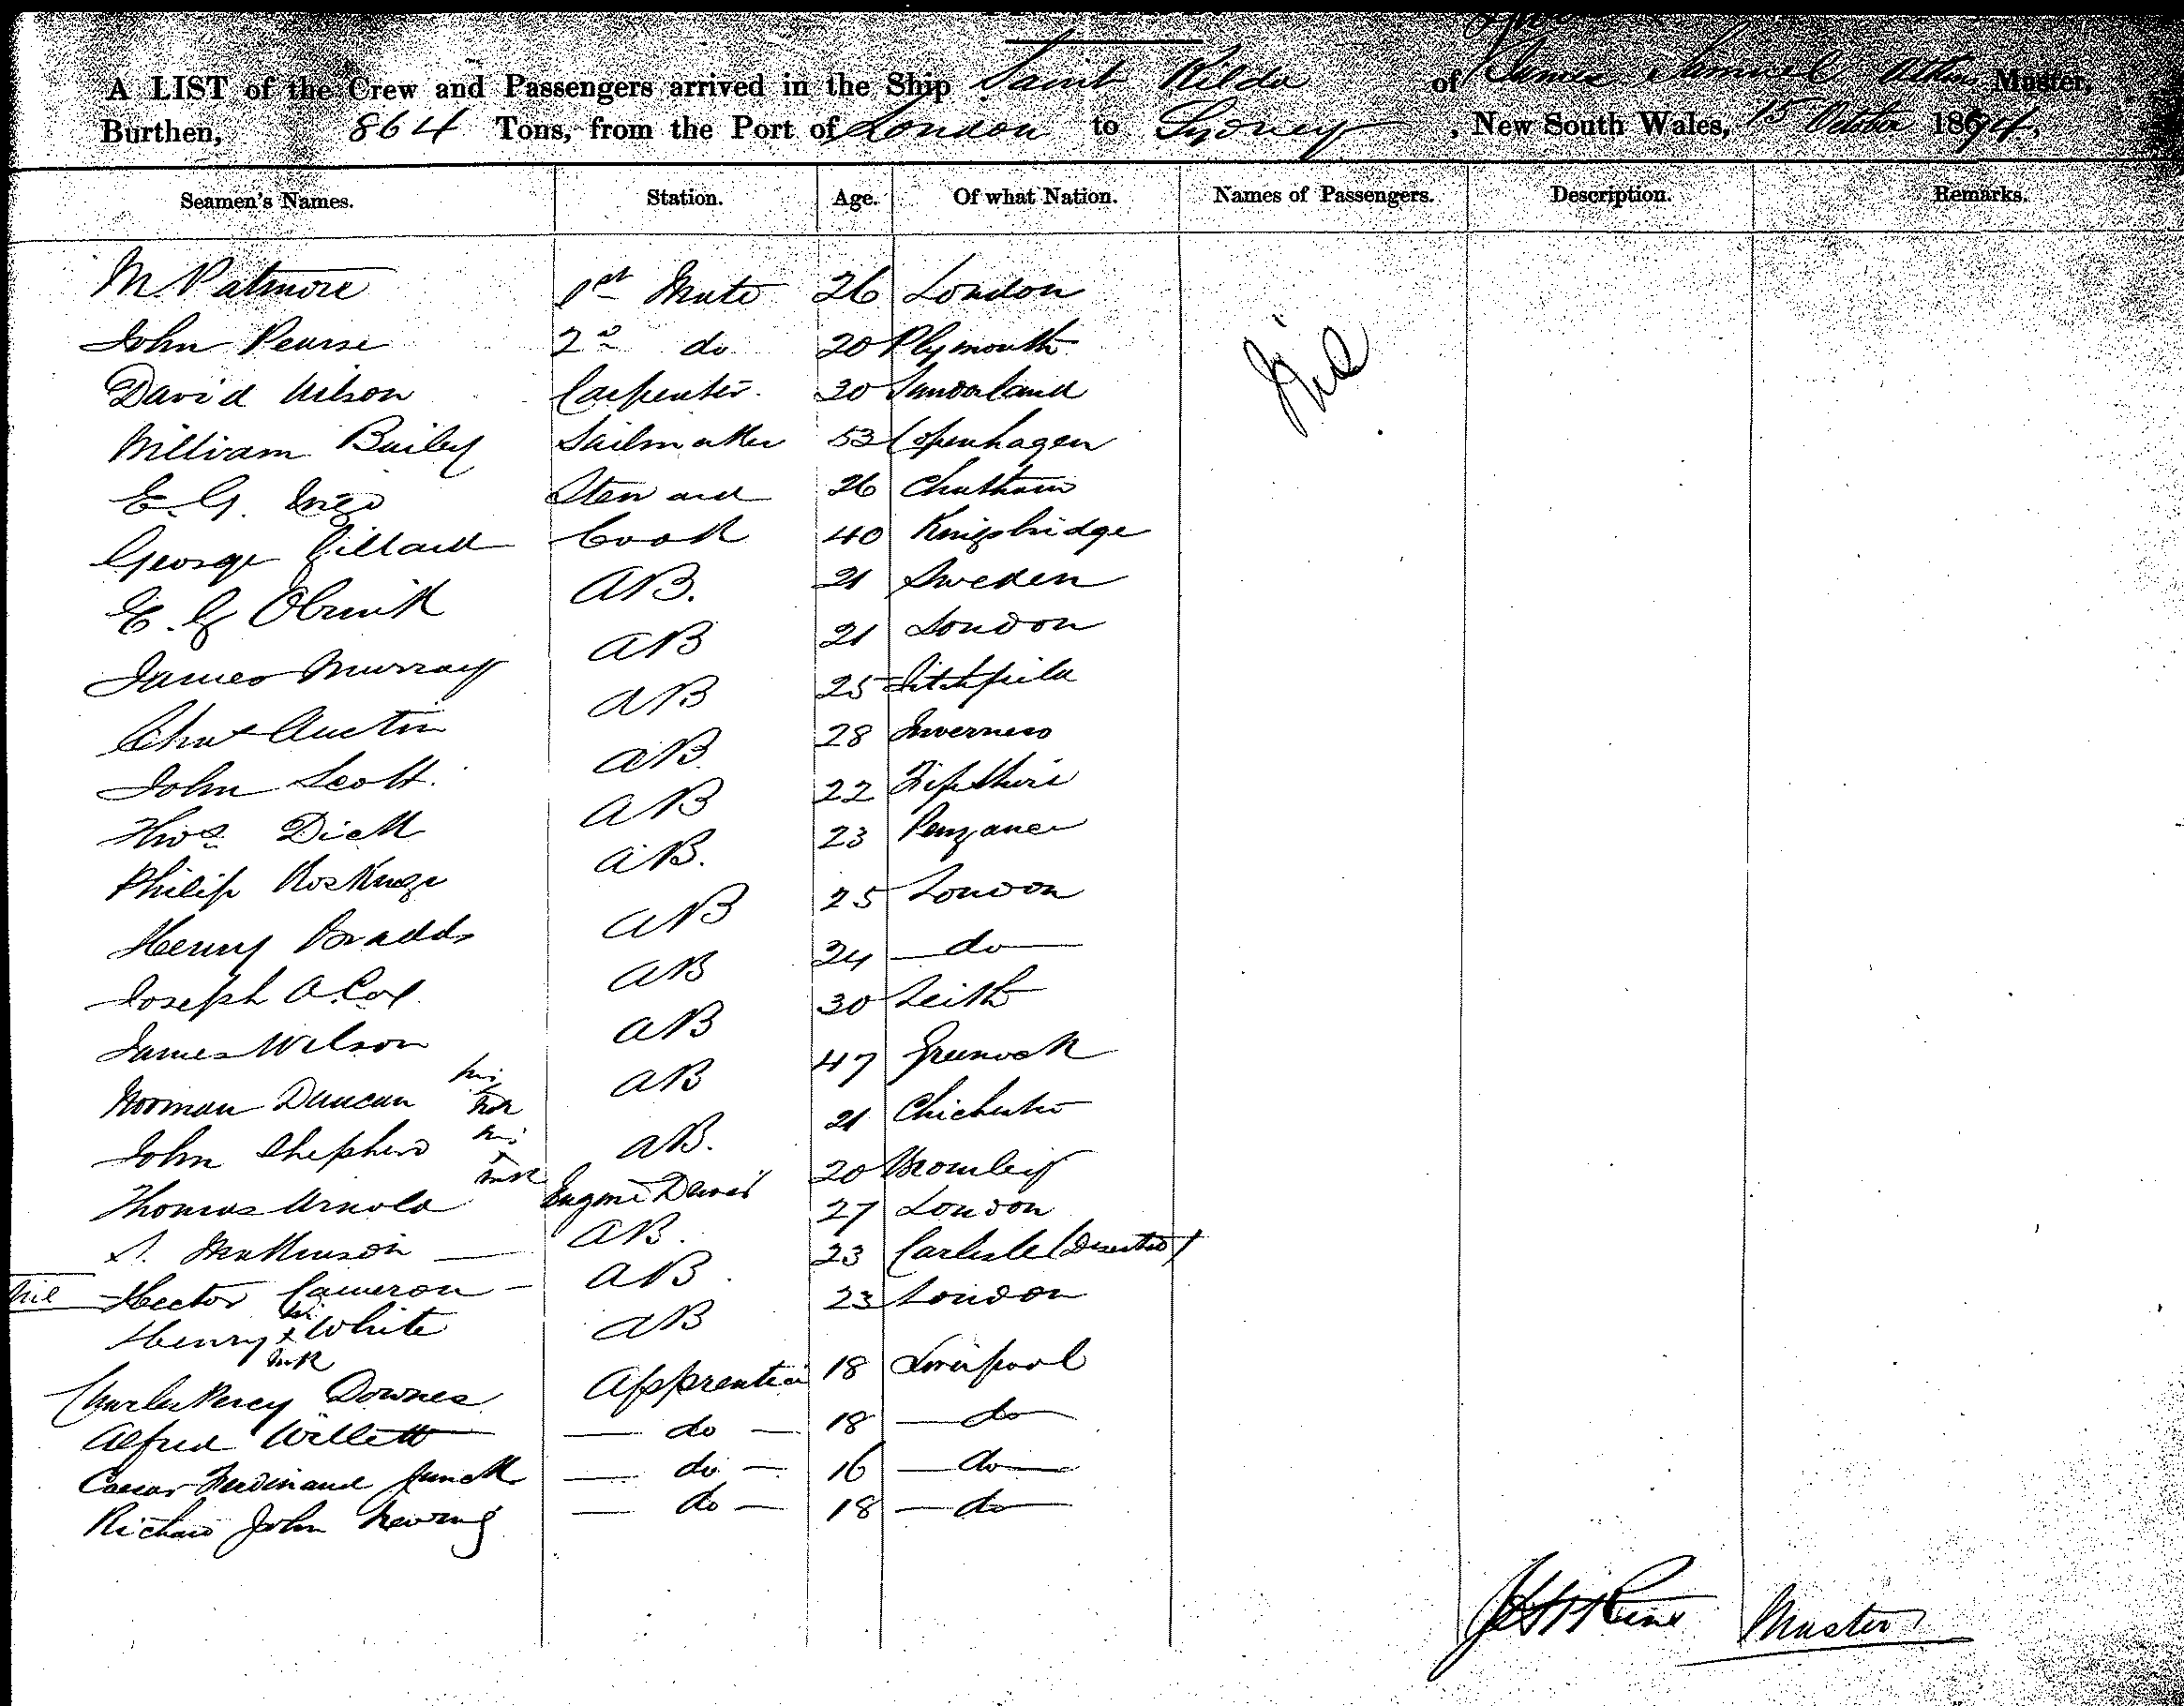 A LIST of the Crew and Passengers arrived in the Ship Saint Kilda of James Samuel Master,
Burthen, 864 Tons, from the Port of London to Sydney, New South Wales, 15 October 1874.
Seamen's Names. Station. Age. Of what Nation. Names of Passengers. Description. Remarks.
M. Patmore 1st Mate 26 London
Nil
John Pearse 2nd do 20 Plymouth
David Wilson Carpenter 30 Sunderland
William Bailey Sailmaker 53 Copenhagen
E. G. Steward 26 Chatham
George Gillard Cook 40 Kingsbridge
E. G AB. 21 Sweden
James Murray AB 21 London
Austin AB 25 Litchfield
John Scott. AB 28 Inverness
Thos. Dick AB 22 Fifeshire
Philip AB. 23 Penzance
Henry Bradds AB 25 London
Joseph A. Cox AB 24 do
James Wilson AB 30 Leith
Norman Duncan his x mk AB 47 Greenock
John Shepherd his x mark AB. 21 Chichester
Thomas Arnold 20 Bromley
AB. 27 London
nil Hector Cameron AB 23 Carlisle (Deserted)
Henry his x mk White AB 23 London
Charles Percy Downes Apprentice 18 Liverpool
Alfred Willett do 18 do
Caesar Ferdinand do 16 do
Richard John do 18 do
Master